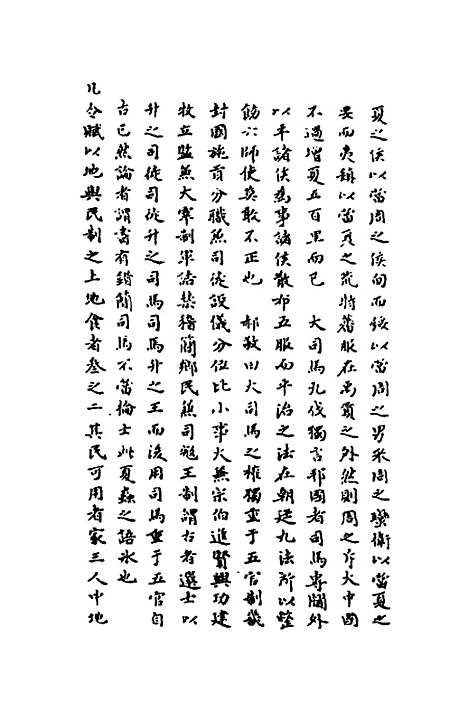 夏之侯以當周之侯甸而綏以當周之男采周之蠻衛以當夏之
要而夷鎮以當夏之荒將蕃服在禹貢之外然則周之斥大中國
不過增夏五百里而已　大司馬九伐獨言邦國者司馬專關外
以平諸侯為事諸侯散布五服而平治之法在朝廷九法所以整
飭六師使莫敢不正也　郝敬曰大司馬之權獨重于五官制畿
封國施貢分職兼司徒設儀分位比小事大兼宗伯進賢興功建
牧立監兼大宰制軍詰禁稽簡鄉民兼司寇王制謂古者選士以
升之司徒司徒升之司馬司馬升之王而後用司馬重于五官自
古已然論者謂書有錯簡司馬不當掄士此夏蟲之語氷也
凡令賦以地與民制之上地食者叁之二其民可用者家三人中地